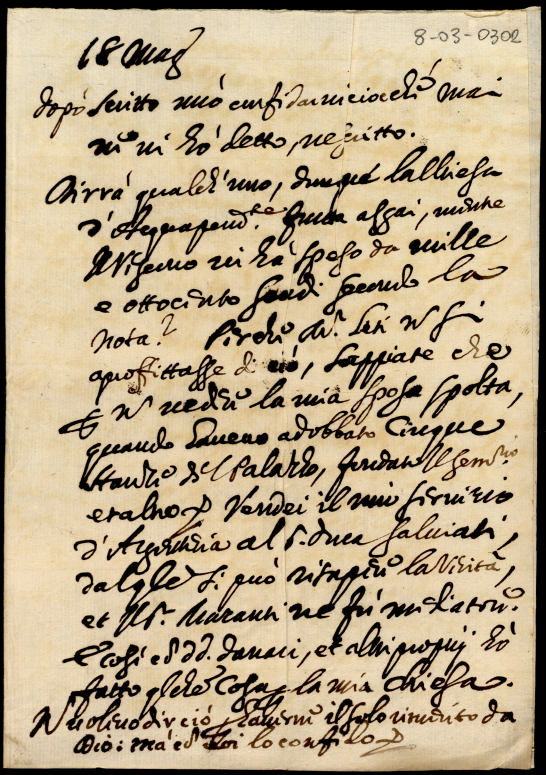 8-03-0302
18 Mag
dopò scritto può confidarvi cioè che mai
nè vi hò detto, nè scritto.
Dirrà qualch'uno, dunque la Chiesa
d'Acquapend.te frutta assai, mentre
il Vescovo vi hà speso da mille
e ottocento scudi secondo la
nota? Perchè
di ciò, sappiate che
P n vedere la mia sposa spolta,
quando havevo adobbato Cinque
stanze del Palazzo, fondato Il semin.rio
et altro Vendei il mio servizio
d'Argenteria al S. Duca Salviati,
dal q.le si può risapere la Verità,
et Il S. Maranti ne fù mediatore.
E così c dd. danari, et altri proprij hò
fatto q.lche Cosa la mia Chiesa.
N volevo dir ciò haverne il solo merito da
Dio: mà cō Voi lo confido